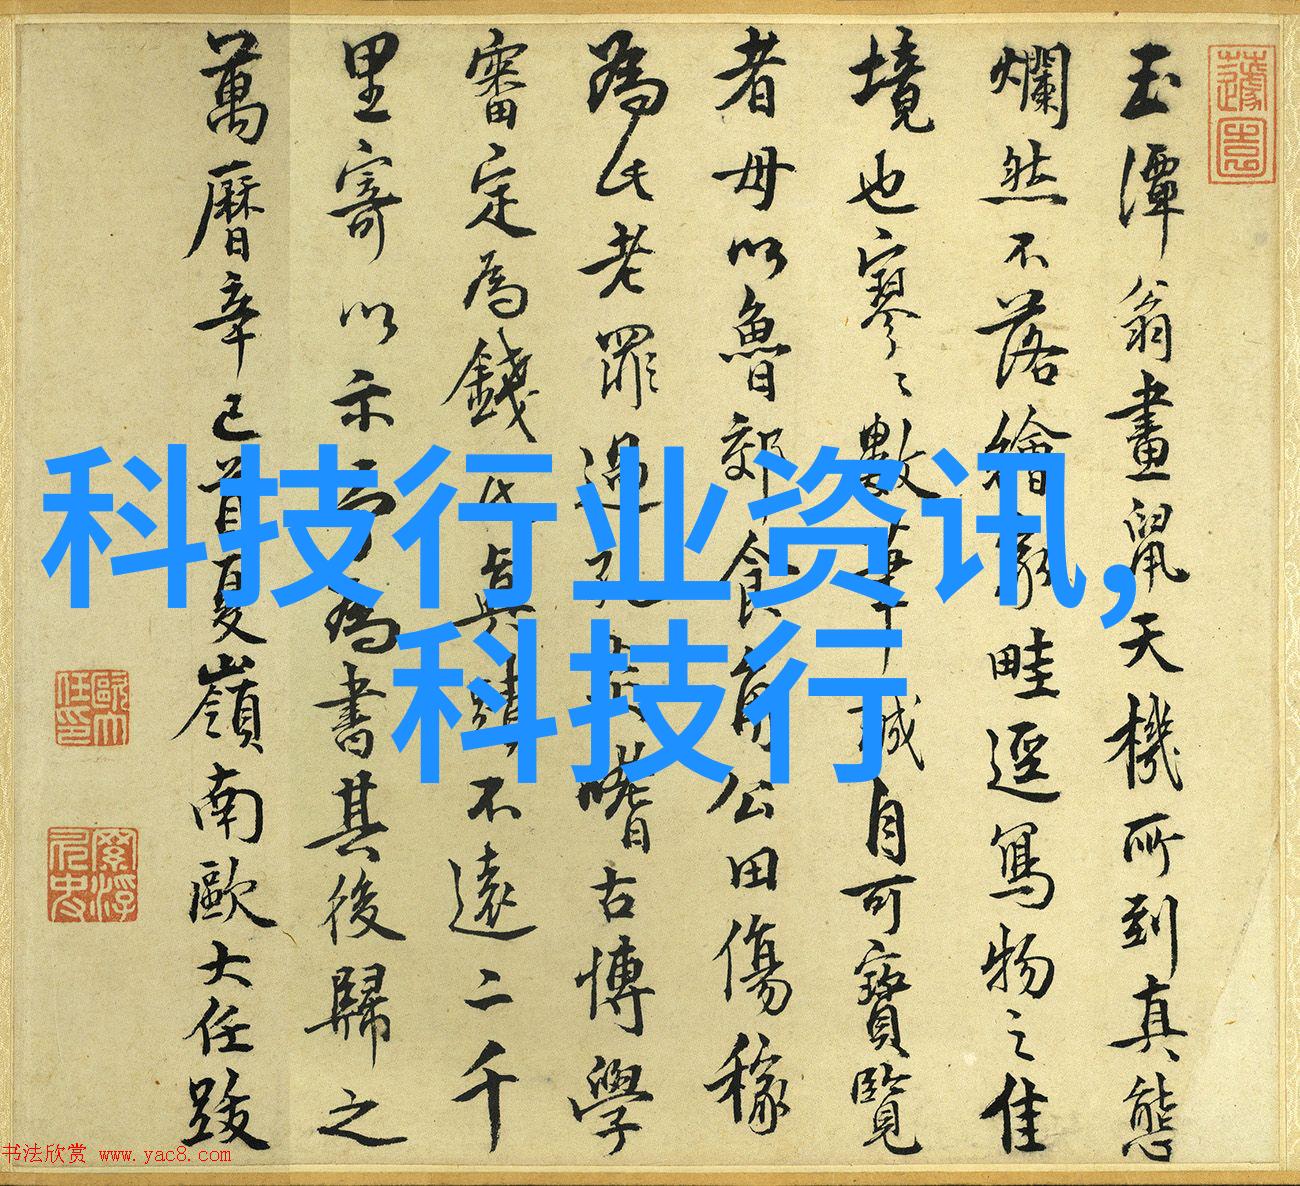 科技行业资讯,
科技行
玉潭翁畫鼠天機所到真態
爛然不落繪家畦逕寫物之佳
境也寥〻數筆誠自可寶覽
者毋以魯郊食角公田傷稼
為此老罪過嗜古博學
審定為錢氏真蹟不遠二千
里寄以示予為書其後歸之
萬曆辛巳首夏嶺南歐大任跋
书法欣赏 www.yac8.com